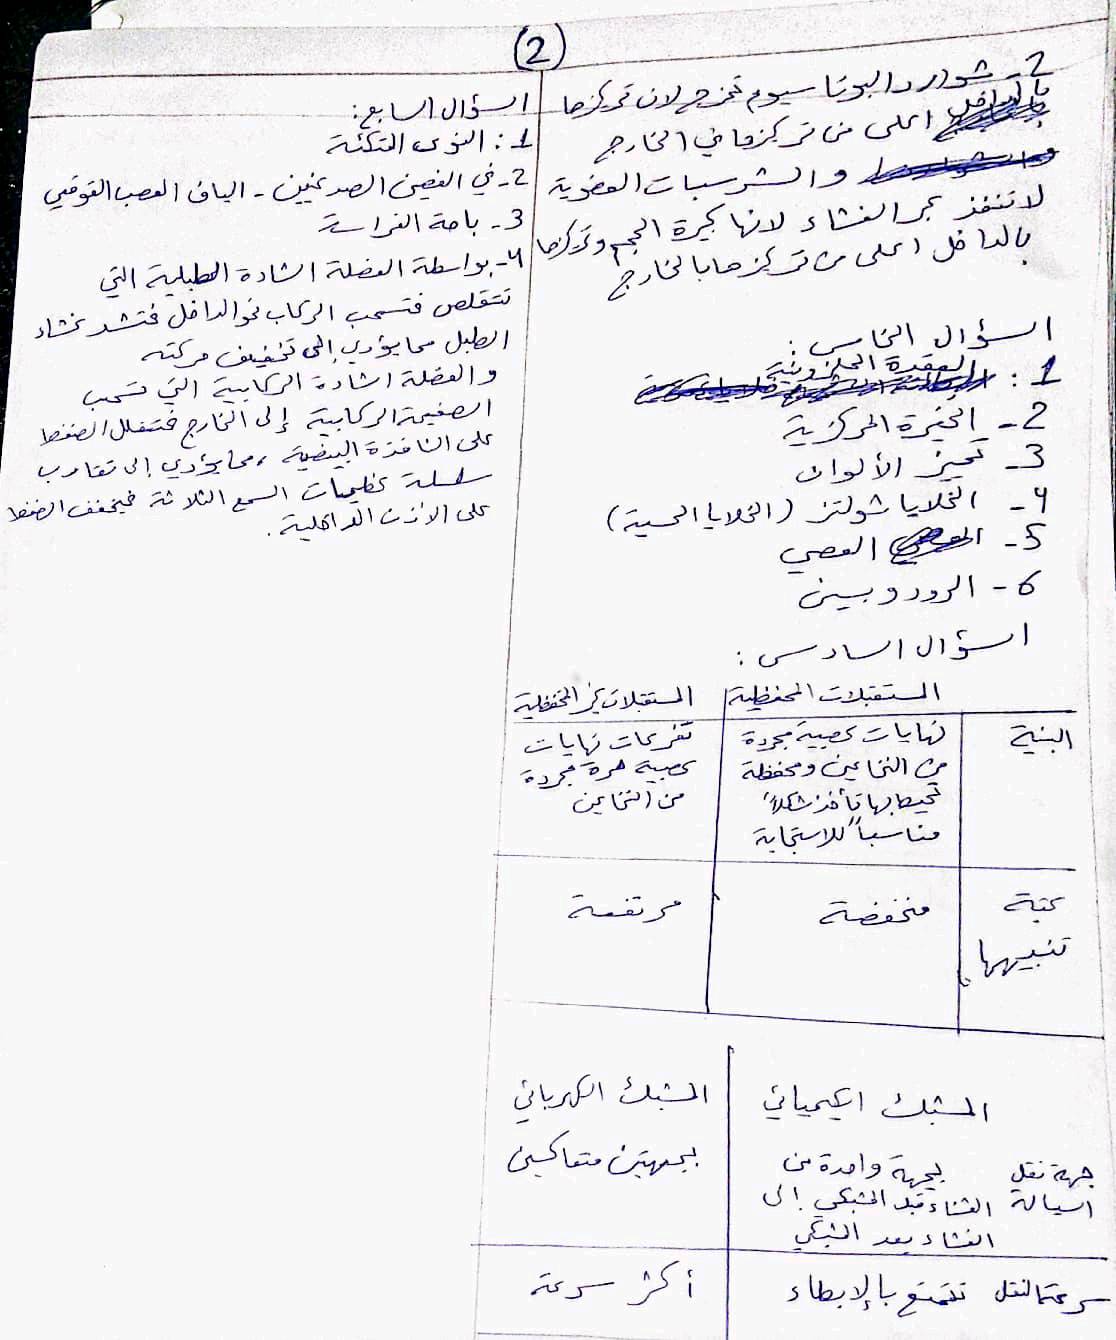 (2)
2- شوارد البوتاسيوم تخرج لان تركيزها
بالداخل اعلى من تركيزها في الخارج
والشرسبات العضوية
لا تنفذ عبر الغشاء لانها كبيرة الحجم وتركيزها
بالداخل اعلى من تركيزها بالخارج
السؤال الخامس:
1: العقدة الحلزونية
2- الحفيرة المركزية
3- تمييز الألوان
4- الخلايا شولتز (الخلايا الحسية)
5- العصي
6- الرودوبسين
السؤال السادس:
المستقبلات المحفظية | المستقبلات غير المحفظية
البنية | نهايات عصبية مجردة من النخاعين ومحفظة تحيط بها تأخذ شكلاً مناسباً للاستجابة | تفرعات نهايات عصبية حرة مجردة من النخاعين
عتبة تنبيهها | منخفضة | مرتفعة
المشبك الكيميائي | المشبك الكهربائي
جهة نقل السيالة | بجهة واحدة من الغشاء قبل المشبكي إلى الغشاء بعد المشبكي | بجهتين متعاكستين
سرعة النقل | تتمتع بالإبطاء | أكثر سرعة
السؤال السابع:
1: النوى المتكئة
2- في الفصين الصدغيين - الياف العصب القوقعي
3- باحة الفراسة
4- بواسطة العضلة الشادة الطبلية التي
تتقلص فتسحب الركاب نحو الداخل فتشد غشاء
الطبل مما يؤدي إلى تخفيف حركته
والعضلة الشادة الركابية التي تسحب
الصفيحة الركابية إلى الخارج فتقلل الضغط
على النافذة البيضية، مما يؤدي إلى تقارب
سلسلة عظيمات السمع الثلاثة فيخفف الضغط
على الأذن الداخلية.